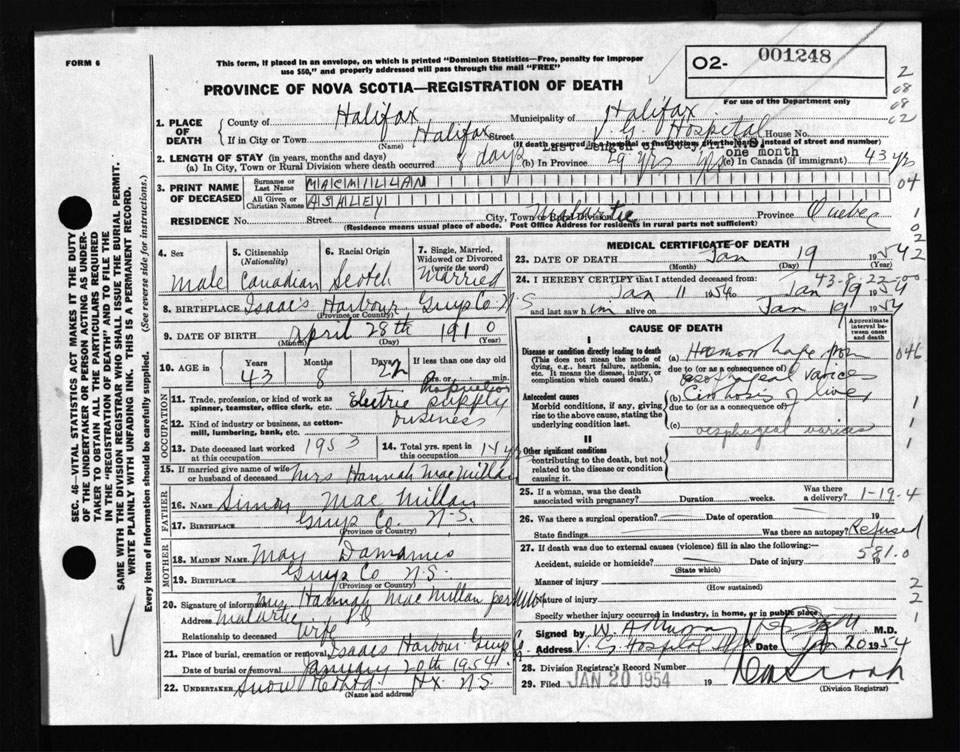 FORM 6
This form, if placed in an envelope, on which is printed "Dominion Statistics—Free, penalty for improper
use $50," and properly addressed will pass through the mail "FREE"
O2- 001248
For use of the Department only
PROVINCE OF NOVA SCOTIA—REGISTRATION OF DEATH
2
08
08
02
04
1
0
2
SEC. 46 - VITAL STATISTICS ACT MAKES IT THE DUTY
OF THE UNDERTAKER OR PERSON ACTING AS UNDER-
TAKER TO OBTAIN ALL THE PARTICULARS REQUIRED
IN THE "REGISTRATION OF DEATH" AND TO FILE THE
SAME WITH THE DIVISION REGISTRAR WHO SHALL ISSUE THE BURIAL PERMIT.
WRITE PLAINLY WITH UNFADING INK. THIS IS A PERMANENT RECORD.
Every item of information should be carefully supplied. (See reverse side for instructions.)
1. PLACE OF DEATH
County of Halifax Municipality of Halifax
If in City or Town Halifax Street V. G. Hospital House No.
(Name) (If death occurred in a hospital or institution, give the name instead of street and number)
2. LENGTH OF STAY (in years, months and days) one month
(a) In City, Town or Rural Division where death occurred 8 days (b) In Province 29 yrs (c) In Canada (if immigrant) 43 yrs
3. PRINT NAME OF DECEASED
Surname or Last Name MACMILLAN
All Given or Christian Names ASALEY
RESIDENCE No. Street City, Town or Rural Division Malartic Province Quebec
(Residence means usual place of abode. Post Office Address for residents in rural parts not sufficient)
4. Sex Male
5. Citizenship (Nationality) Canadian
6. Racial Origin Scotch
7. Single, Married, Widowed or Divorced (write the word) Married
8. BIRTHPLACE Isaac's Harbour Guys Co N S
(Province or Country)
9. DATE OF BIRTH April 28th 1910
(Month) (Day) (Year)
10. AGE in Years 43 Months 8 Days 22 If less than one day old hrs. or min.
OCCUPATION
11. Trade, profession, or kind of work as spinner, teamster, office clerk, etc. Proprietor
Electric supply
12. Kind of industry or business, as cotton-mill, lumbering, bank, etc. business
13. Date deceased last worked at this occupation 1953
14. Total yrs. spent in this occupation 14 yrs
15. If married give name of wife or husband of deceased Mrs Hannah MacMillan
FATHER
16. NAME Simon MacMillan
17. BIRTHPLACE Guys Co. N.S.
(Province or Country)
MOTHER
18. MAIDEN NAME May
19. BIRTHPLACE Guys Co N.S.
(Province or Country)
20. Signature of informant Mrs Hannah MacMillan per
Address Malartic
Relationship to deceased Wife
21. Place of burial, cremation or removal Isaacs Harbour Guys Co.
Date of burial or removal January 20th 1954
22. UNDERTAKER Snow Hx. N.S.
(Name and address)
MEDICAL CERTIFICATE OF DEATH
23. DATE OF DEATH Jan 19 1954
(Month) (Day) (Year)
24. I HEREBY CERTIFY that I attended deceased from:
Jan 11 1954 to Jan 19 1954
and last saw him alive on Jan 19 1954
CAUSE OF DEATH
Approximate interval between onset and death
I
Disease or condition directly leading to death
(This does not mean the mode of dying, e.g., heart failure, asthenia, etc. It means the disease, injury, or complication which caused death.)
(a) Hemorrhage from
due to (or as a consequence of)
oesophageal varices
Antecedent causes
Morbid conditions, if any, giving rise to the above cause, stating the underlying condition last.
(b) Cirrhosis of liver
due to (or as a consequence of)
(c) oesphageal varices
II
Other significant conditions
contributing to the death, but not related to the disease or condition causing it.
046
1
1
1
25. If a woman, was the death associated with pregnancy? Duration weeks. Was there a delivery?
1-19-4
26. Was there a surgical operation? Date of operation 19
State findings Was there an autopsy? Refused
27. If death was due to external causes (violence) fill in also the following:— 581.0
Accident, suicide or homicide? Date of injury 19
(State which)
Manner of injury
(How sustained)
Nature of injury
Specify whether injury occurred in industry, in home, or in public place
2
2
1
Signed by W A Murray M.D.
Address V. G. Hospital Date Jan 20 1954
28. Division Registrar's Record Number
29. Filed JAN 20 1954 19
(Division Registrar)